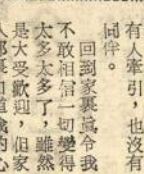 有人牽引，也沒有
同伴。
回到家裏真令我
不敢相信一切變得
太多太多了，雖然
是大受歡迎，但家